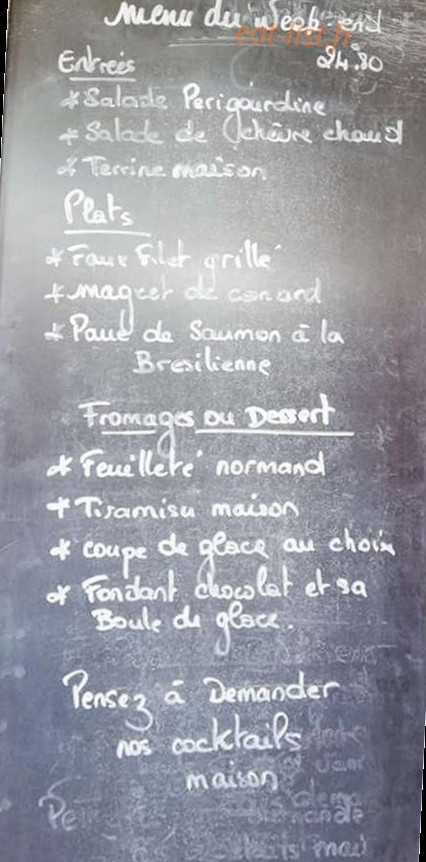 Menu du Week end
eat-list.fr
24.80
Entrées
* Salade Perigourdine
* Salade de chèvre chaud
* Terrine maison
Plats
* Faux Filet grillé
* magret de canard
* Pavé de Saumon à la
Bresilienne
Fromages ou Dessert
* Feuilleté normand
* Tiramisu maison
* coupe de glace au choix
* Fondant chocolat et sa
Boule de glace.
Pensez à Demander
nos cocktails
maison